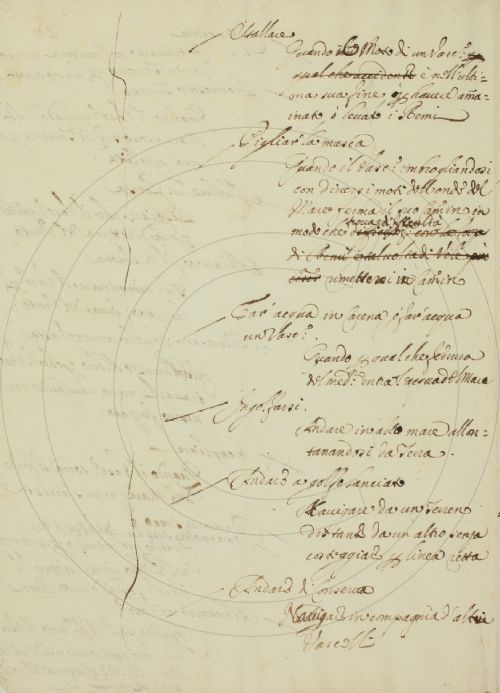 Stallare
Quando il Moto di un Vase.º p
qualche accidente è nell'ulti=
ma sua fine, p havere amai=
inato ò levati i Remi
Pigliar la masca
Quando il Vase.º imbrogliandosi
con diversi moti dell'onde del
Mare ferma il suo camin in
modo che
di Remi e rimettersi in camin
Far' acqua in carena, è far' acqua
un Vase.º
Quando p qualche fessura
del med.º entra l'acqua del Mare
Ingolfarsi.
Andare in alto mare allon=
tanandosi da Terra.
Andare a golfo lanciato
Navigare da un Terreno
distante da un altro senza
costeggiare p linea retta
Andare di Conserva
Navigare in compagnia d'altri
Vascelli